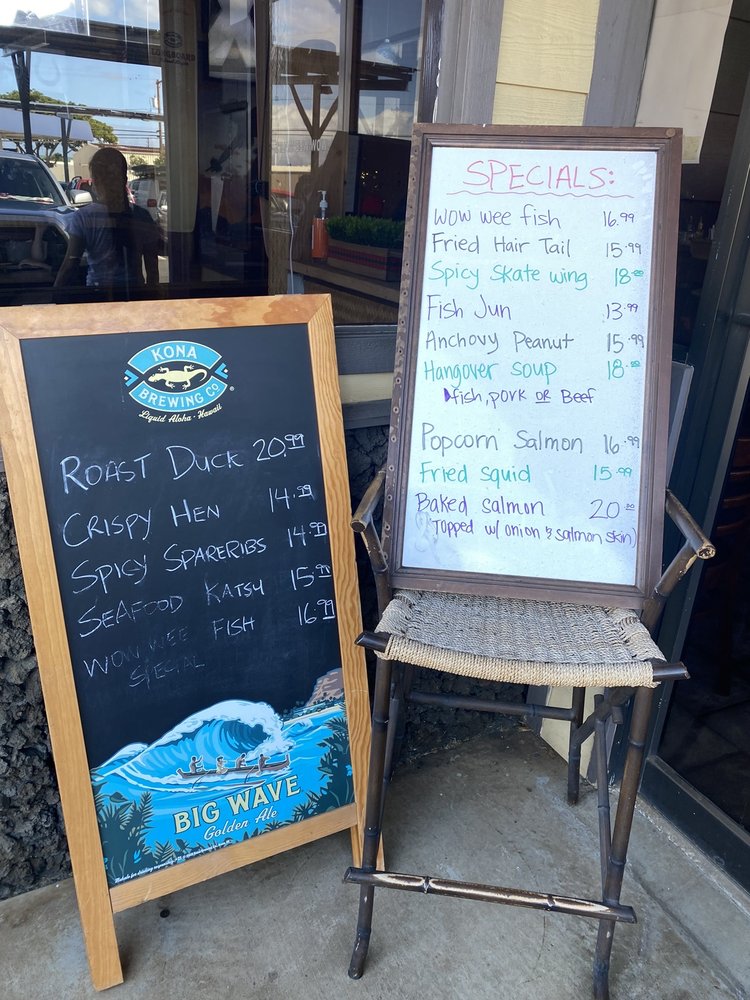 KONA
BREWING CO
Liquid Aloha · Hawaii
ROAST DUCK 20.99
CRISPY HEN 14.99
SPICY SPARERIBS 14.99
SEAFOOD KATSU 15.99
WOW WEE FISH 16.99
SPECIAL
BIG WAVE
Golden Ale
SPECIALS:
WOW wee fish 16.99
Fried Hair Tail 15.99
Spicy Skate wing 18.00
Fish Jun 13.99
Anchovy Peanut 15.99
Hangover soup 18.00
fish, pork OR Beef
Popcorn Salmon 16.99
Fried squid 15.99
Baked salmon 20.00
(Topped w/ onion & salmon skin)